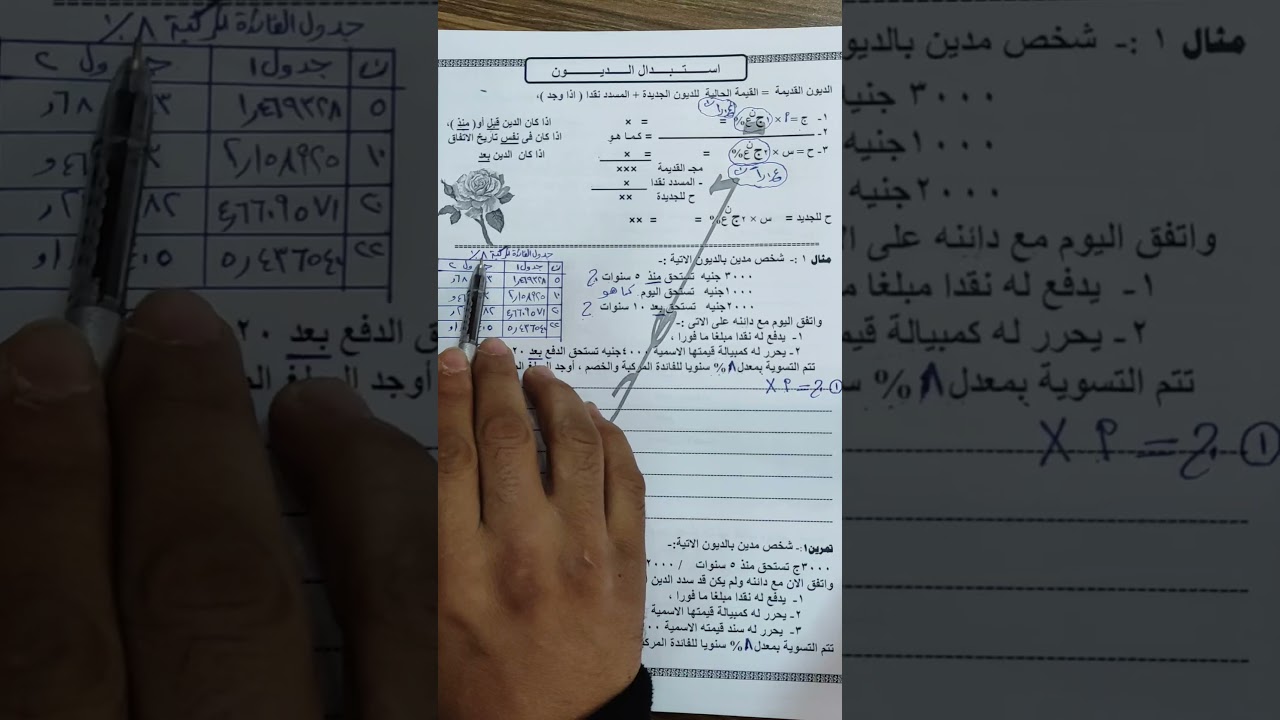 استبدال الديون
الديون القديمة = القيمة الحالية للديون الجديدة + المسدد نقدا ( اذا وجد )،
١- ج = أ × ١ج ن ع% = × = اذا كان الدين قبل أو( منذ )،
٢- = كما هو اذا كان فى نفس تاريخ الاتفاق
٣- ح = س × ٢ج ن ع% = × = اذا كان الدين بعد
مجـ القديمة ×××
- المسدد نقدا ×
ح للجديدة ××
ح للجديد = س × ٢ج ن ع% = = ××
جدول الفائدة المركبة ٨٪
ن جدول ١ جدول ٢
٥ ١٫٤٦٩٣٢٨
١٠ ٢٫١٥٨٩٢٥
٢٠ ٤٫٦٦٠٩٥٧١
٢٢ ٥٫٤٣٦٥٤٠
مثال ١ :- شخص مدين بالديون الاتية :-
٣٠٠٠ جنيه تستحق منذ ٥ سنوات ج
١٠٠٠جنيه تستحق اليوم كما هو
٢٠٠٠جنيه تستحق بعد ١٠ سنوات ح
واتفق اليوم مع دائنه على الاتى :-
١- يدفع له نقدا مبلغا ما فورا ،
٢- يحرر له كمبيالة قيمتها الاسمية ٤٠٠٠جنيه تستحق الدفع بعد ٢٠
تتم التسوية بمعدل ٨% سنويا للفائدة المركبة والخصم ، أوجد المبلغ
① ج = أ ×
تمرين١:- شخص مدين بالديون الاتية:-
٣٠٠٠ج تستحق منذ ٥ سنوات / ٢٠٠٠
واتفق الان مع دائنه ولم يكن قد سدد الدين
١- يدفع له نقدا مبلغا ما فورا ،
٢- يحرر له كمبيالة قيمتها الاسمية
٣- يحرر له سند قيمته الاسمية
تتم التسوية بمعدل ٨% سنويا للفائدة